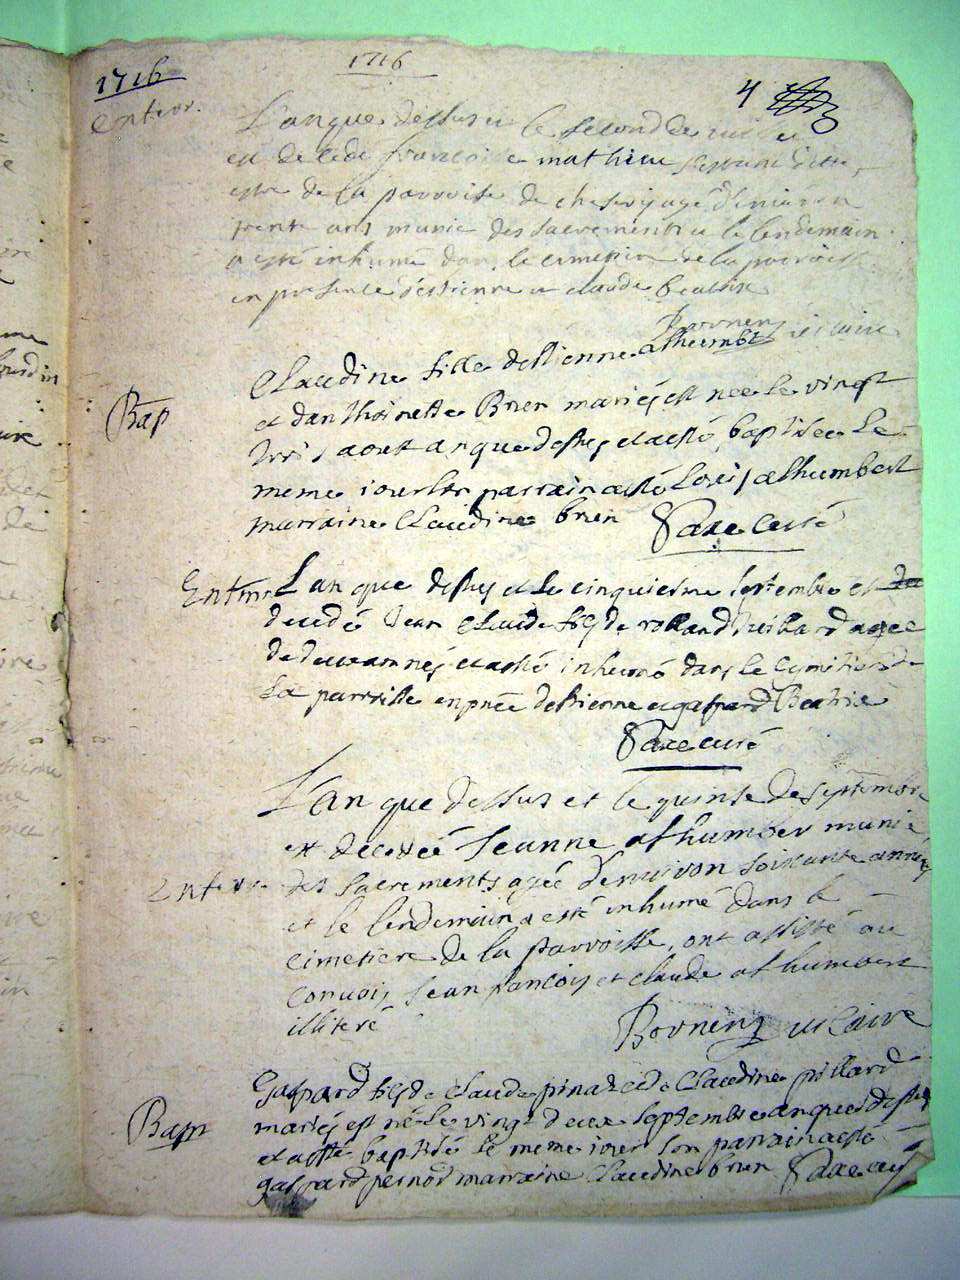 1716
1716
4
enterr.
L'an que dessus et le second de
est decede françoise mathieu
de la parroisse de
trente ans munie des sacrements et le lendemain
a esté inhumé dans le cimetiere de la parroisse
en presence d'estienne et claude beatrix
Bornenz vicaire
Claudine fille d'estienne athumbert
Bap
et d'anthoinette Brien mariés est née le vingt
trois aout an que dessus et a esté baptisée le
meme iour son parrain a esté Loüis athumbert
marraine Claudine brien Saxe curé
Enterr
L'an que dessus et le cinquiesme septembre est
decedé Jean claude fils de rolland agee
de deux années et a esté inhumé dans le cymetiere de
La parroisse en pnce d'estienne et gaspard Beatrix
Saxe curé
L'an que dessus et le quinse de septembre
est decedée Jeanne athumber munie
Enterr.
des sacrements agée d'environ soixante années
et le lendemain a esté inhumé dans le
cimetiere de la parroisse, ont assisté au
convois Jean françois et claude athumbert
illiteré
Bornenz vicaire
Gaspard fils de claude et de claudine pillard
mariés est né le vingt deux septembre an que dessus
Bapt
et a esté baptisé le meme iour son parrain a esté
gaspard pernod marraine claudine brien Saxe curé